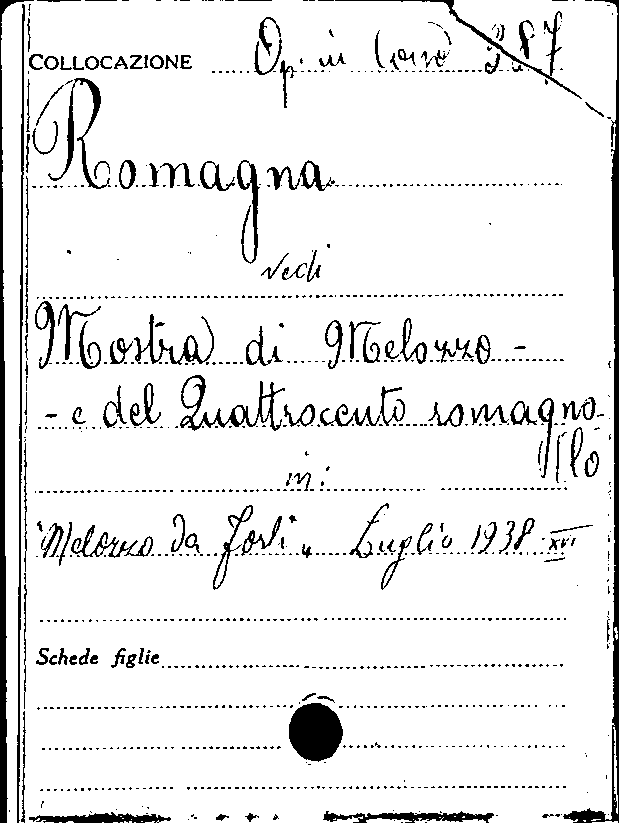 COLLOCAZIONE Op. in Corso 387
Romagna
vedi
Mostra di Melozzo -
- e del Quattrocento romagno-
lo
in:
"Melozzo da Forlì" Luglio 1938 XVI
Schede figlie